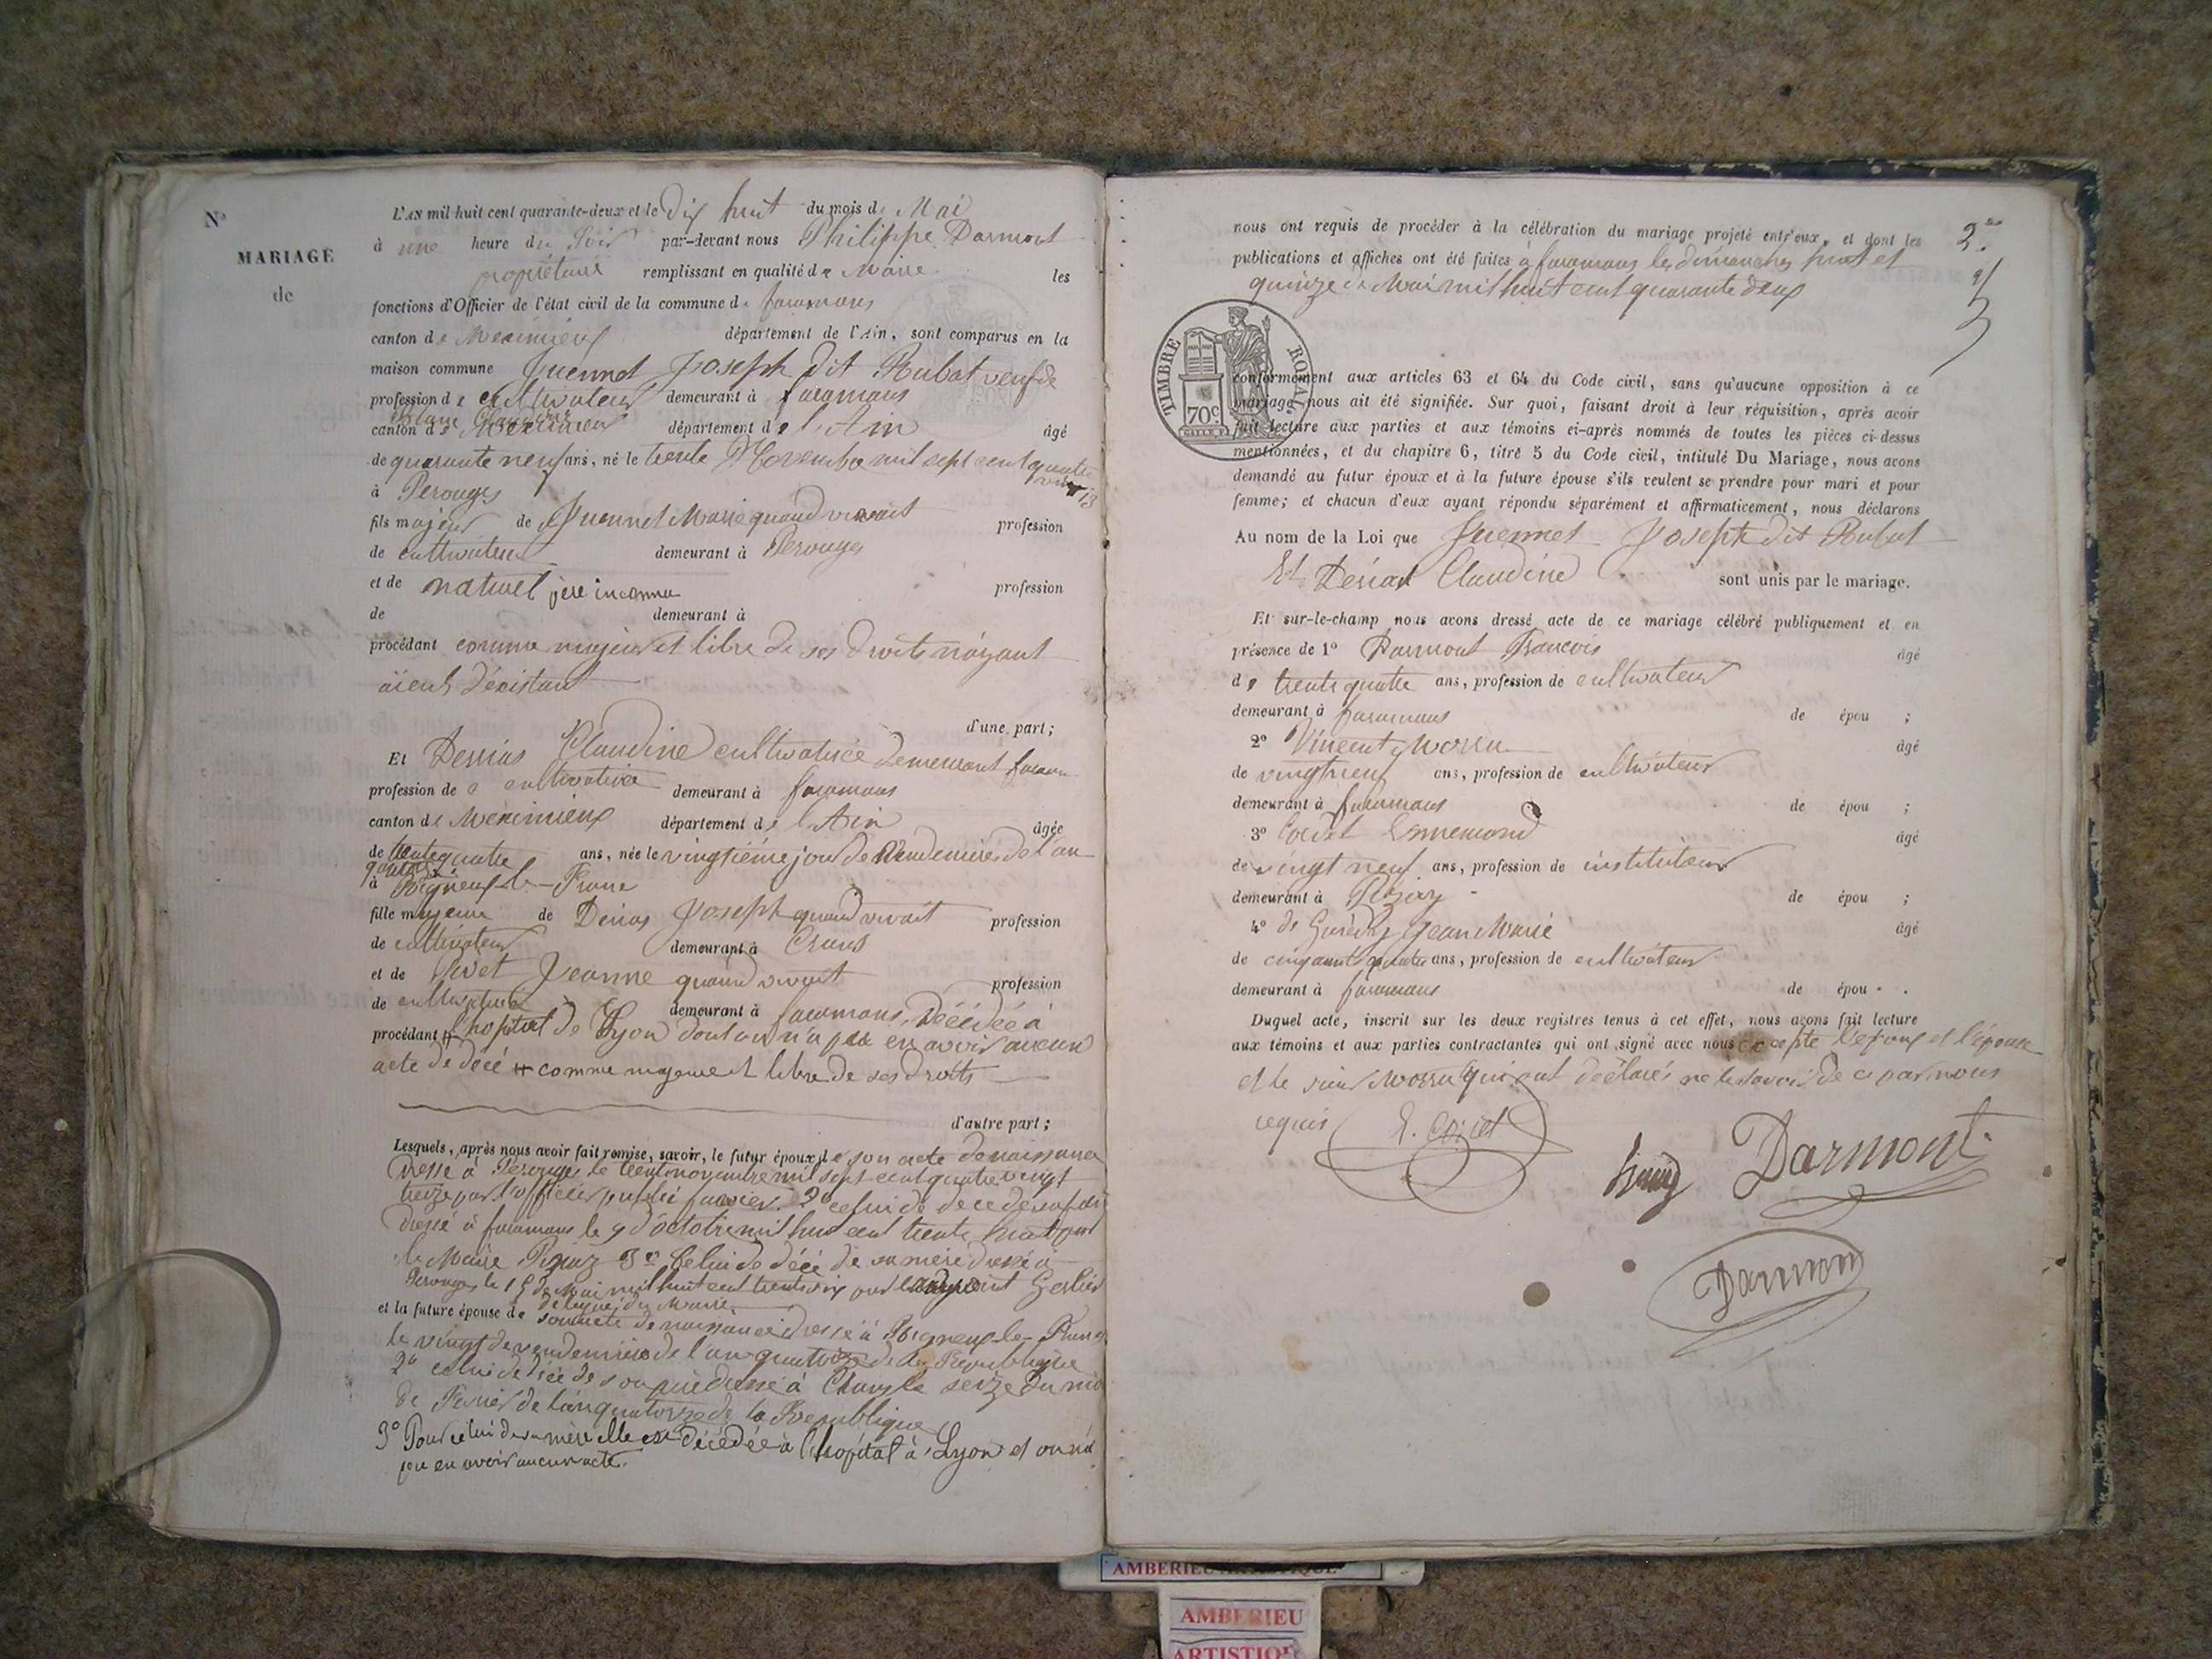 N°
MARIAGE
de
L'AN mil huit cent quarante-deux et le dix huit du mois de Mai
à une heure du Soir par-devant nous Philippe Darmont
propriétaire remplissant en qualité de Maire les
fonctions d'Officier de l'état civil de la commune de faramans
canton de Meximieux département de l'Ain, sont comparus en la
maison commune Juennet Joseph dit Rubat veuf de
profession de cultivateur demeurant à faramans
Claudine
canton de Meximieux département de l'Ain âgé
de quarante neuf ans, né le trente Novembre mil sept cent quatre
13
à Perouges
fils majeur de Juennet Marie quand vivait profession
de cultivateur demeurant à Perouges
et de naturel père inconnu profession
de demeurant à
procédant comme majeur et libre de ses droits n'ayant
aïeuls d'existant
d'une part;
Et Derias Claudine cultivatrice demeurant
profession de cultivatrice demeurant à faramans
canton de Meximieux département de l'Ain âgée
de trente quatre ans, née le vingtième jour de Vendemière de l'an
quatorze
à Rigneux-le-Franc
fille majeure de Derias Joseph quand vivait profession
de cultivateur demeurant à Crans
et de Jeanne quand vivait profession
de cultivatrice demeurant à faramans, Décédée à
procédant l'hopital de Lyon dont on n'a pu en avoir aucun
acte de décé comme majeure et libre de ses droits
d'autre part;
Lesquels, après nous avoir fait remise, savoir, le futur époux de son acte de naissance
dressé à Perouges le trente novembre mil sept cent quatre vingt
treize par l'officier public 2° celui de décé de sa
dressé à faramans le 9 d'octobre mil huit cent trente huit par
le Maire 3° Celui de décé de sa mère dressé à
Perouges le 15 de Mai mil huit cent trente six par
délégué du Maire
et la future épouse de son acte de naissance dressé à Rigneux-le-Franc
le vingt de vendemière de l'an quatorze de la Republique
2° celui de décé de son père dressé à Crans le seize du moi
de de l'an quatorze de la Republique
3° Pour celui de sa mère elle est décédée à l'hopital à Lyon et on n'a
pu en avoir aucun acte.
nous ont requis de procéder à la célébration du mariage projeté entr'eux, et dont les
publications et affiches ont été faites à faramans les dimanches huit et
quinze de Mai mil huit cent quarante deux
TIMBRE ROYAL
70c
conformément aux articles 63 et 64 du Code civil, sans qu'aucune opposition à ce
mariage nous ait été signifiée. Sur quoi, faisant droit à leur réquisition, après avoir
fait lecture aux parties et aux témoins ci-après nommés de toutes les pièces ci-dessus
mentionnées, et du chapitre 6, titre 5 du Code civil, intitulé Du Mariage, nous avons
demandé au futur époux et à la future épouse s'ils veulent se prendre pour mari et pour
femme; et chacun d'eux ayant répondu séparément et affirmativement, nous déclarons
Au nom de la Loi que Juennet Joseph dit Rubat
Et Derias Claudine sont unis par le mariage.
Et sur-le-champ nous avons dressé acte de ce mariage célébré publiquement et en
présence de 1° Darmont François âgé
de trente quatre ans, profession de cultivateur
demeurant à faramans de épou ;
2° Vincent Morru âgé
de vingt neuf ans, profession de cultivateur
demeurant à faramans de épou ;
3° Ennemond âgé
de vingt neuf ans, profession de instituteur
demeurant à de épou ;
4° Jean Marie âgé
de cinquante quatre ans, profession de cultivateur
demeurant à faramans de épou .
Duquel acte, inscrit sur les deux registres tenus à cet effet, nous avons fait lecture
aux témoins et aux parties contractantes qui ont signé avec nous excepte l'epoux et l'épouse
et le sieur Morru qui ont déclarés ne le savoir de ce par nous
requis
Darmont
Darmon
AMBERIEU ARTISTIQUE
AMBERIEU
ARTISTIQUE